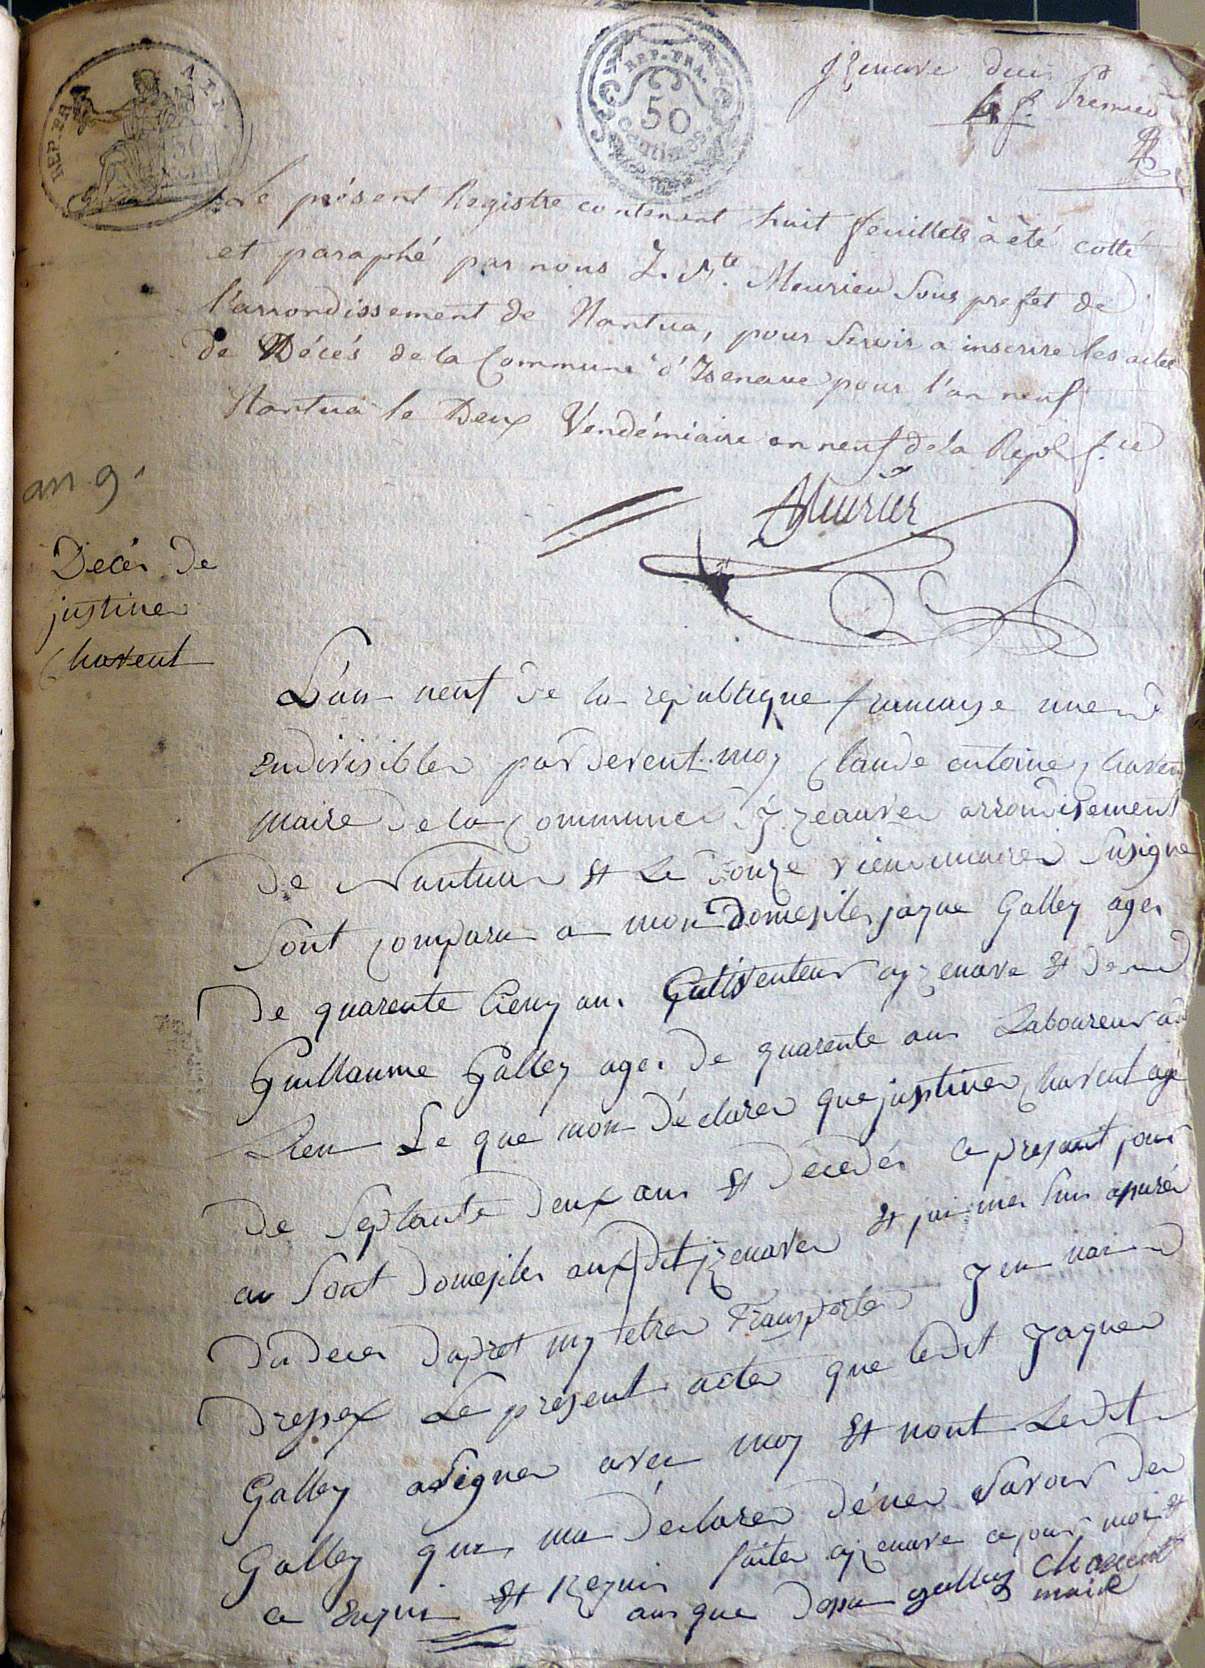 REP. FRA.
50
centimes
REP. FRA
Izenave deces
4 f. Premier
Le présent Registre contenant huit feuillets à été cotté
et paraphé par nous J. Mte. Meurier Sous prefet de
l'arrondissement de Nantua, pour Servir a inscrire les actes
de Décés de la Commune d'Izenave pour l'an neuf
Nantua le Deux Vendémiaire an neuf de la Rep. f.ce
Meurier
an 9.
Deces De
justine
Chavent
L'an neuf De la republique francaise une
Endivisible pardevent moy Claude antoine Chavent
Maire De la Commune D'yzenave arrondisement
De Nantua et Le Vendemiaire Susigne
Sont comparu a mon Domesile jaque Galley agé
De quarente Cienq ans Cultiventeur ayzenave et de
Guillaume Galley age De quarente ans Laboureur au
Lieu Le que mon Déclaré que justine Chavent agé
De Septante Deux ans et Decedé ce presant jour
au Sont Domesile auxdit yzenave et jai me suis assuré
Du deces Dapret my etre Transporté
Dresser Le present acte que ledit Jaque
Galley a Signe avec moy et nont Ledit
Galley qui ma Déclaré de ne Savoir De
ce Enquis et Requis faite ayzenave ce jour, mois et
ans que Dessu galley Chavent
maire